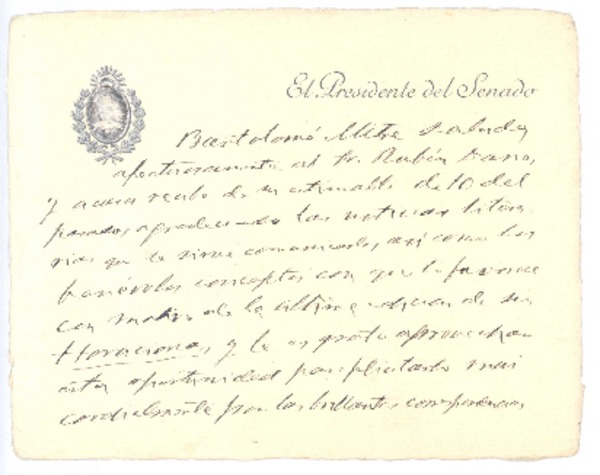 El Presidente del Senado
Bartolomé Mitre saluda
afectuosamente al Sr. Rubén Darío,
y acusa recibo de su estimable de 10 del
pasado, agradeciendo las noticias litera-
rias que le sirve comunicarle, así como los
benévolos conceptos con que le favorece
con motivo de la última edición de sus
Horacianas, y le es grato aprovechar
esta oportunidad para felicitarlo mui
cordialmente por las brillantes correspondencias